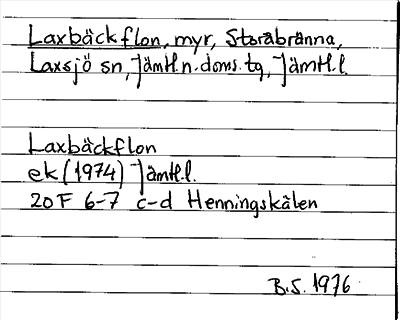 Laxbäckflon, myr, Storåbränna,
Laxsjö sn, Jämtl.n.doms.tg, Jämtl.l.
Laxbäckflon
ek (1974) Jämtl.l.
20F 6-7 c-d Henningskälen
B.S. 1976